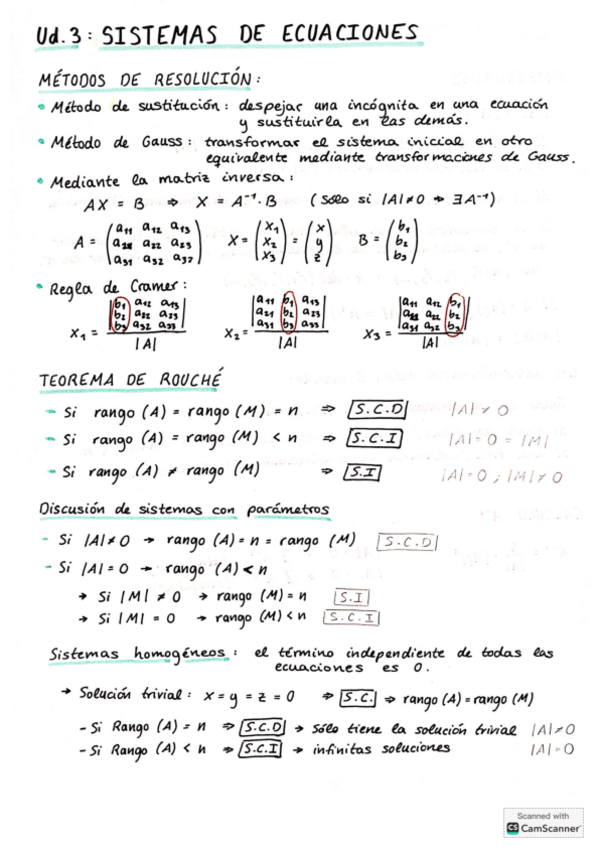 Ud.3: SISTEMAS DE ECUACIONES
MÉTODOS DE RESOLUCIÓN:
• Método de sustitución: despejar una incógnita en una ecuación
y sustituirla en las demás.
• Método de Gauss: transformar el sistema inicial en otro
equivalente mediante transformaciones de Gauss.
• Mediante la matriz inversa:
AX = B ⇒ X = A⁻¹·B (Sólo si |A|≠0 ⇒ ∃A⁻¹)
A = (a11 a12 a13 / a21 a22 a23 / a31 a32 a37) X = (x1 / x2 / x3) = (x / y / z) B = (b1 / b2 / b3)
• Regla de Cramer:
X1 = |b1 a12 a13 / b2 a22 a23 / b3 a32 a33| / |A| X2 = |a11 b1 a13 / a21 b2 a23 / a31 b3 a33| / |A| X3 = |a11 a12 b1 / a21 a22 b2 / a31 a32 b3| / |A|
TEOREMA DE ROUCHÉ
- Si rango (A) = rango (M) = n ⇒ S.C.D |A| ≠ 0
- Si rango (A) = rango (M) < n ⇒ S.C.I |A| = 0 = |M|
- Si rango (A) ≠ rango (M) ⇒ S.I |A| = 0 ; |M| ≠ 0
Discusión de sistemas con parámetros
- Si |A| ≠ 0 → rango (A) = n = rango (M) S.C.D
- Si |A| = 0 → rango (A) < n
→ Si |M| ≠ 0 → rango (M) = n S.I
→ Si |M| = 0 → rango (M) < n S.C.I
Sistemas homogéneos: el término independiente de todas las
ecuaciones es 0.
→ Solución trivial: x = y = z = 0 ⇒ S.C. ⇒ rango (A) = rango (M)
- Si Rango (A) = n ⇒ S.C.D → Sólo tiene la solución trivial |A| ≠ 0
- Si Rango (A) < n ⇒ S.C.I → infinitas soluciones |A| = 0
Scanned with
CS CamScanner